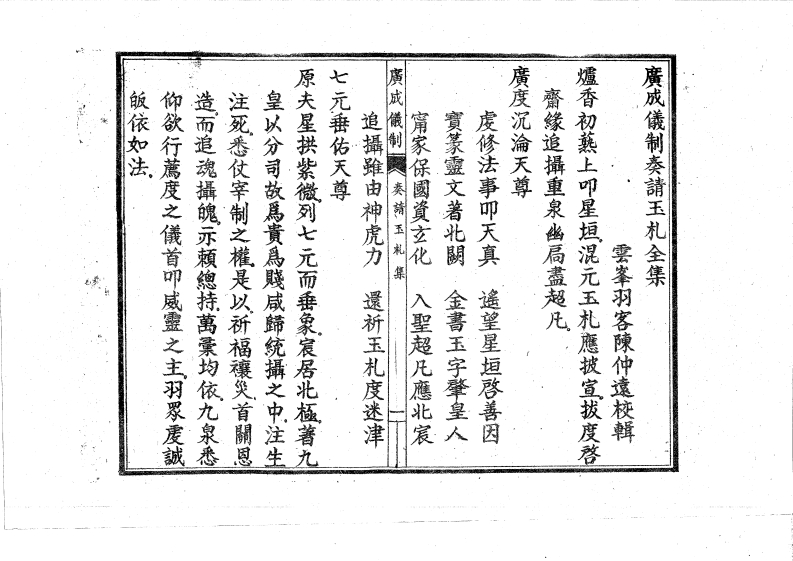 廣成儀制奏請玉札全集
雲峯羽客陳仲遠校輯
爐香初爇上叩星垣混元玉札應披宣拔度啓
齋緣追攝重泉幽扃盡超凡
廣度沉淪天尊
虔修法事叩天真　遙望星垣啓善因
寶篆靈文著北闕　金書玉字肇皇人
甯家保國資玄化　入聖超凡應北宸
廣成儀制　奏請玉札集　一
追攝雖由神虎力　還祈玉札度迷津
七元垂佑天尊
原夫星拱紫微列七元而垂象宸居北極著九
皇以分司故爲貴爲賤咸歸統攝之中注生
注死悉仗宰制之權是以祈福禳災首關恩
造而追魂攝魄亦頼總持萬彙均依九泉悉
仰欲行薦度之儀首叩威靈之主羽眾虔誠
皈依如法